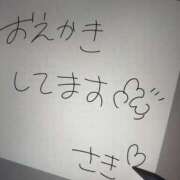 おえかき
してます
さき♡